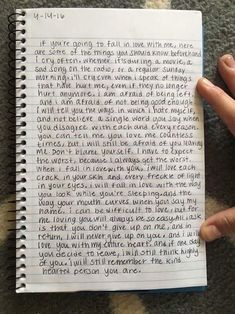 4-14-16
if you're going to fall in love with me, here
are some of the things you should know beforehand
I cry often, whether it's during a movie, a
sad song on the radio, or a regular sunday
morning. I'll cry even when I speak of things
that have hurt me, even if they no longer
hurt anymore. I am afraid of being left,
and I am afraid of not being good enough.
I will tell you the ways in which I hate myself
and not believe a single word you say when
you disagree with each and every reason.
you can tell me you love me countless
times, but I will still be afraid of you leaving
me. Don't blame yourself. I have to expect
the worst, because I always get the worst.
When I fall in love with you, I will love each
crack in your skin and every freckle of light
in your eyes. I will fall in love with the way
you look while you're sleeping and the
way your mouth curves when you say my
name. I can be difficult to love, but for
me loving you will always be so easy. All I ask
is that you don't give up on me, and in
return, I will never give up on you, and I will
love you with my entire heart. and if one day
you decide to leave, I will still think highly
of you. I will still remember the kind
hearted person you are.